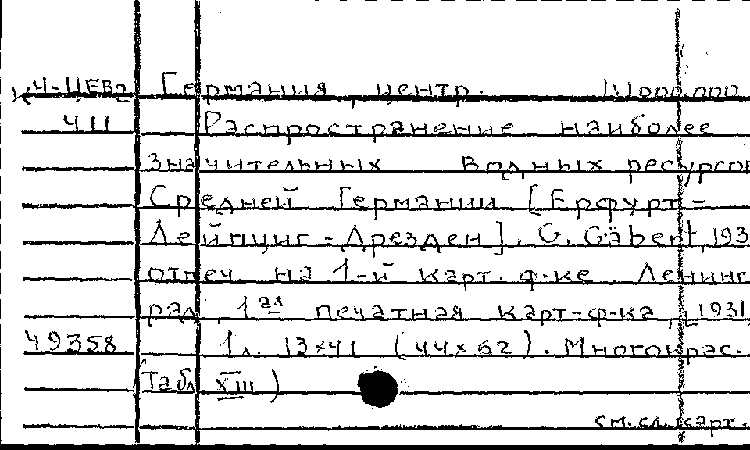 Ч-ЦЕВ2 Германия, центр. 1:1000.000
Ч11 Распространение наиболее
значительных водных ресурсов
Средней Германии [Ерфурт-
Лейпциг-Дрезден]. G. Gäbert, 193
отпеч. на 1-й карт. ф-ке Ленинг
рад, 1ая печатная карт-ф-ка, 1931.
49358 1 л. 13×41 (44×62). Многокрас.
(Табл XIII)
см. сл. карт.